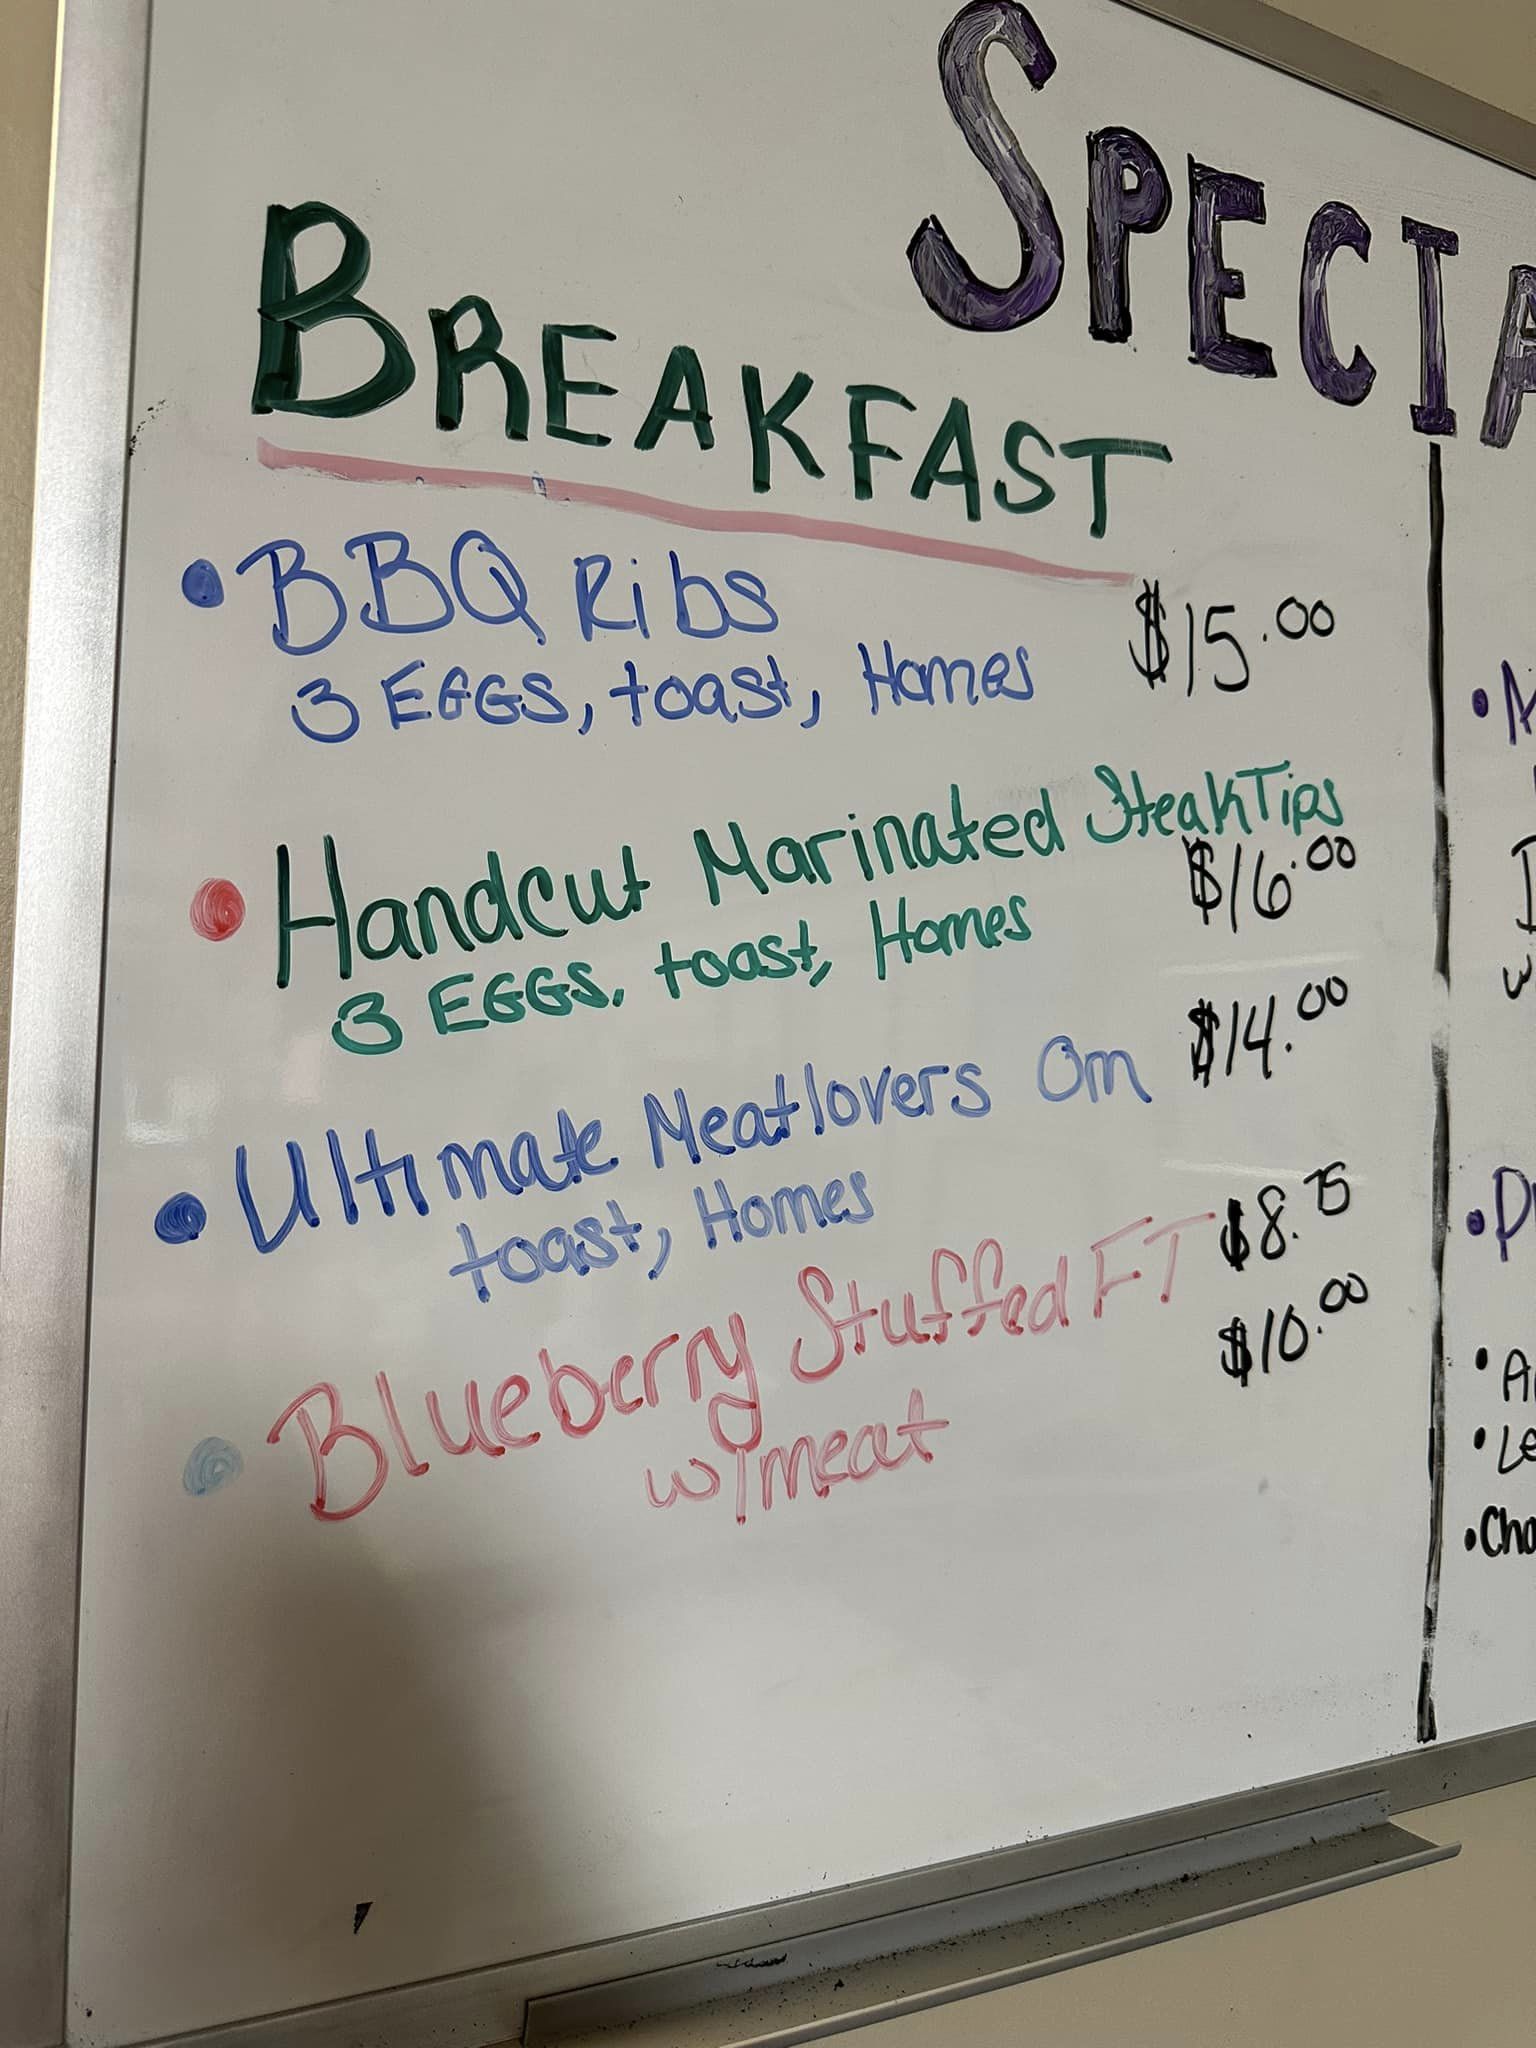 SPECIA
BREAKFAST
• BBQ Ribs $15.00
3 EGGS, toast, Homes
• Handcut Marinated Steak Tips
$16.00
3 EGGS, toast, Homes
• Ultimate Meatlovers Om $14.00
toast, Homes
• Blueberry Stuffed FT $8.75
w/meat $10.00